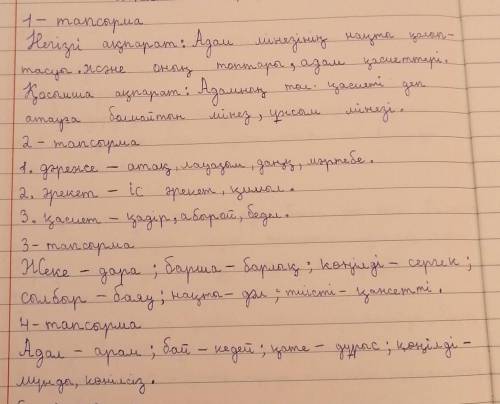 1 - тапсырма
Негізгі ақпарат: Адам мінезінің нақты қалып-
тасуы және оның топтары, адам қасиеттері.
Қосымша ақпарат: Адамның төл қасиеті деп
атауға болмайтын мінез, ұнсым мінезі.
2 - тапсырма
1. дәреже – атақ, лауазым, даңқ, мәртебе.
2. әрекет – іс әрекет, қимыл.
3. қасиет – қадір, абырой, бедел.
3 - тапсырма
Жеке – дара ; барша – барлық ; көңілді – сергек ;
солбыр – баяу ; нақты – дәл ; тиісті –
4 - тапсырма
Адал – арам ; бай – кедей ; қате – дұрыс ; көңілді –
мұңды, көңілсіз.